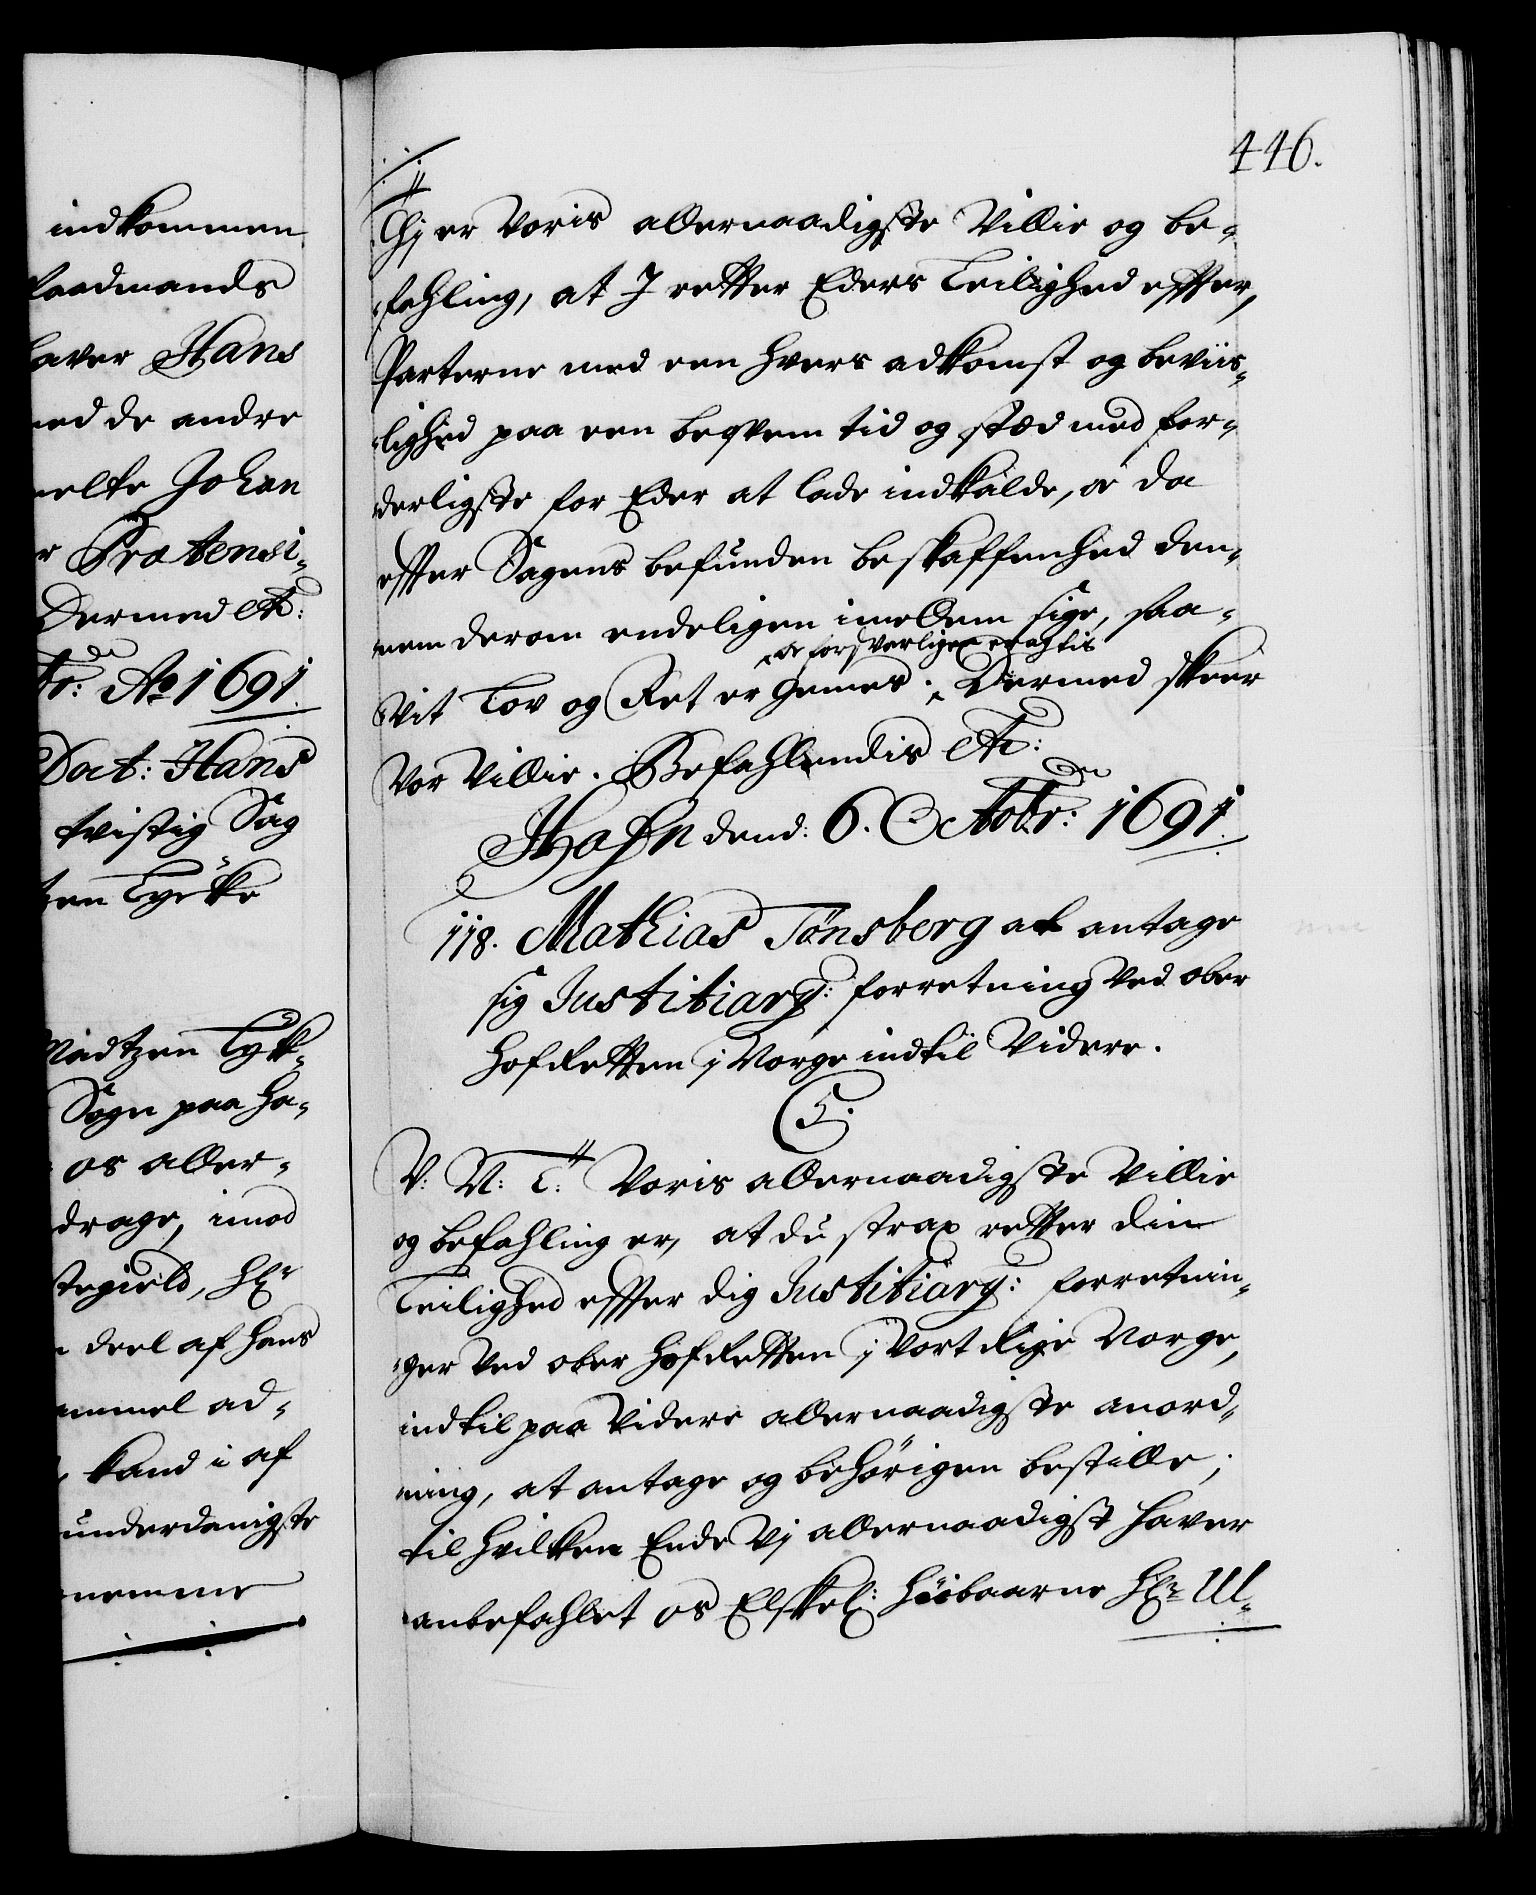 indkommen
raadmands
haver Hans
med de andre
melte Johan
r Prætensi-
Dermed etc:
br: Ao 1691.
Doct: Hans
tvistig Sag
tzen Tycke
Madtzen Tyk-
Sogn paa Ha-
os aller-
drage, imod
stegield, Hr
deel af hans
ammel ad-
kand i af
underdanigste
nemme
446.
Thj er Voris allernaadigste Villie og be-
fahling, at I retter Eders Leilighed effter,
Parterne med een hvers adkomst og beviis-
lighed paa een beqvem tid og stæd med for-
derligste for Eder at lade indkalde, oc da
effter Sagens befunden beskaffenhed den-
nem derom endeligen imellem sige, saa-
oc forsvarligen eragtis
vit Lov og Ret er gemes. Dermed skeer
Vor Villie. Befahlendis etc:
Hafn dend: 6. Octobr: 1691.
118. Mathias Tønsberg at antage
sig Justitiarij: forretning ved ober
Hof Retten j Norge indtil Videre.
C. 5.
V: N: T: Voris allernaadigste Villie
og befahling er, at du strax retter din
Leilighed effter dig Justitiarij: forretnin-
ger ved ober Hof Retten j Vort Rige Norge,
indtil paa Videre allernaadigste anord-
ning, at antage og behørigen bestille;
til hvilken Ende Vj allernaadigst haver
anbefahlet os Elskel: Høibaarne Hr: Ul-